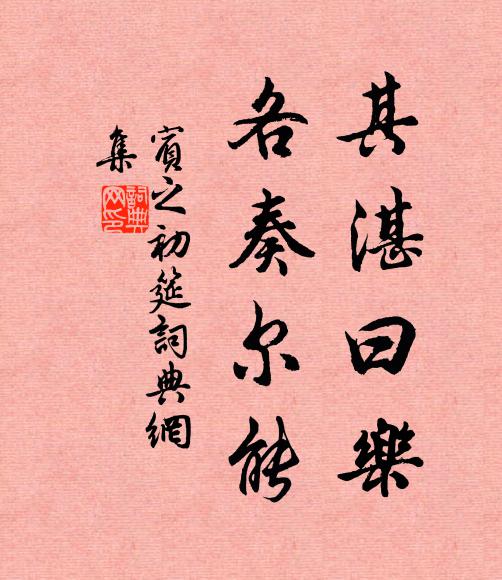 其湛曰樂
各奏尔能
賓之初筵詞典網
集
詞典
网印